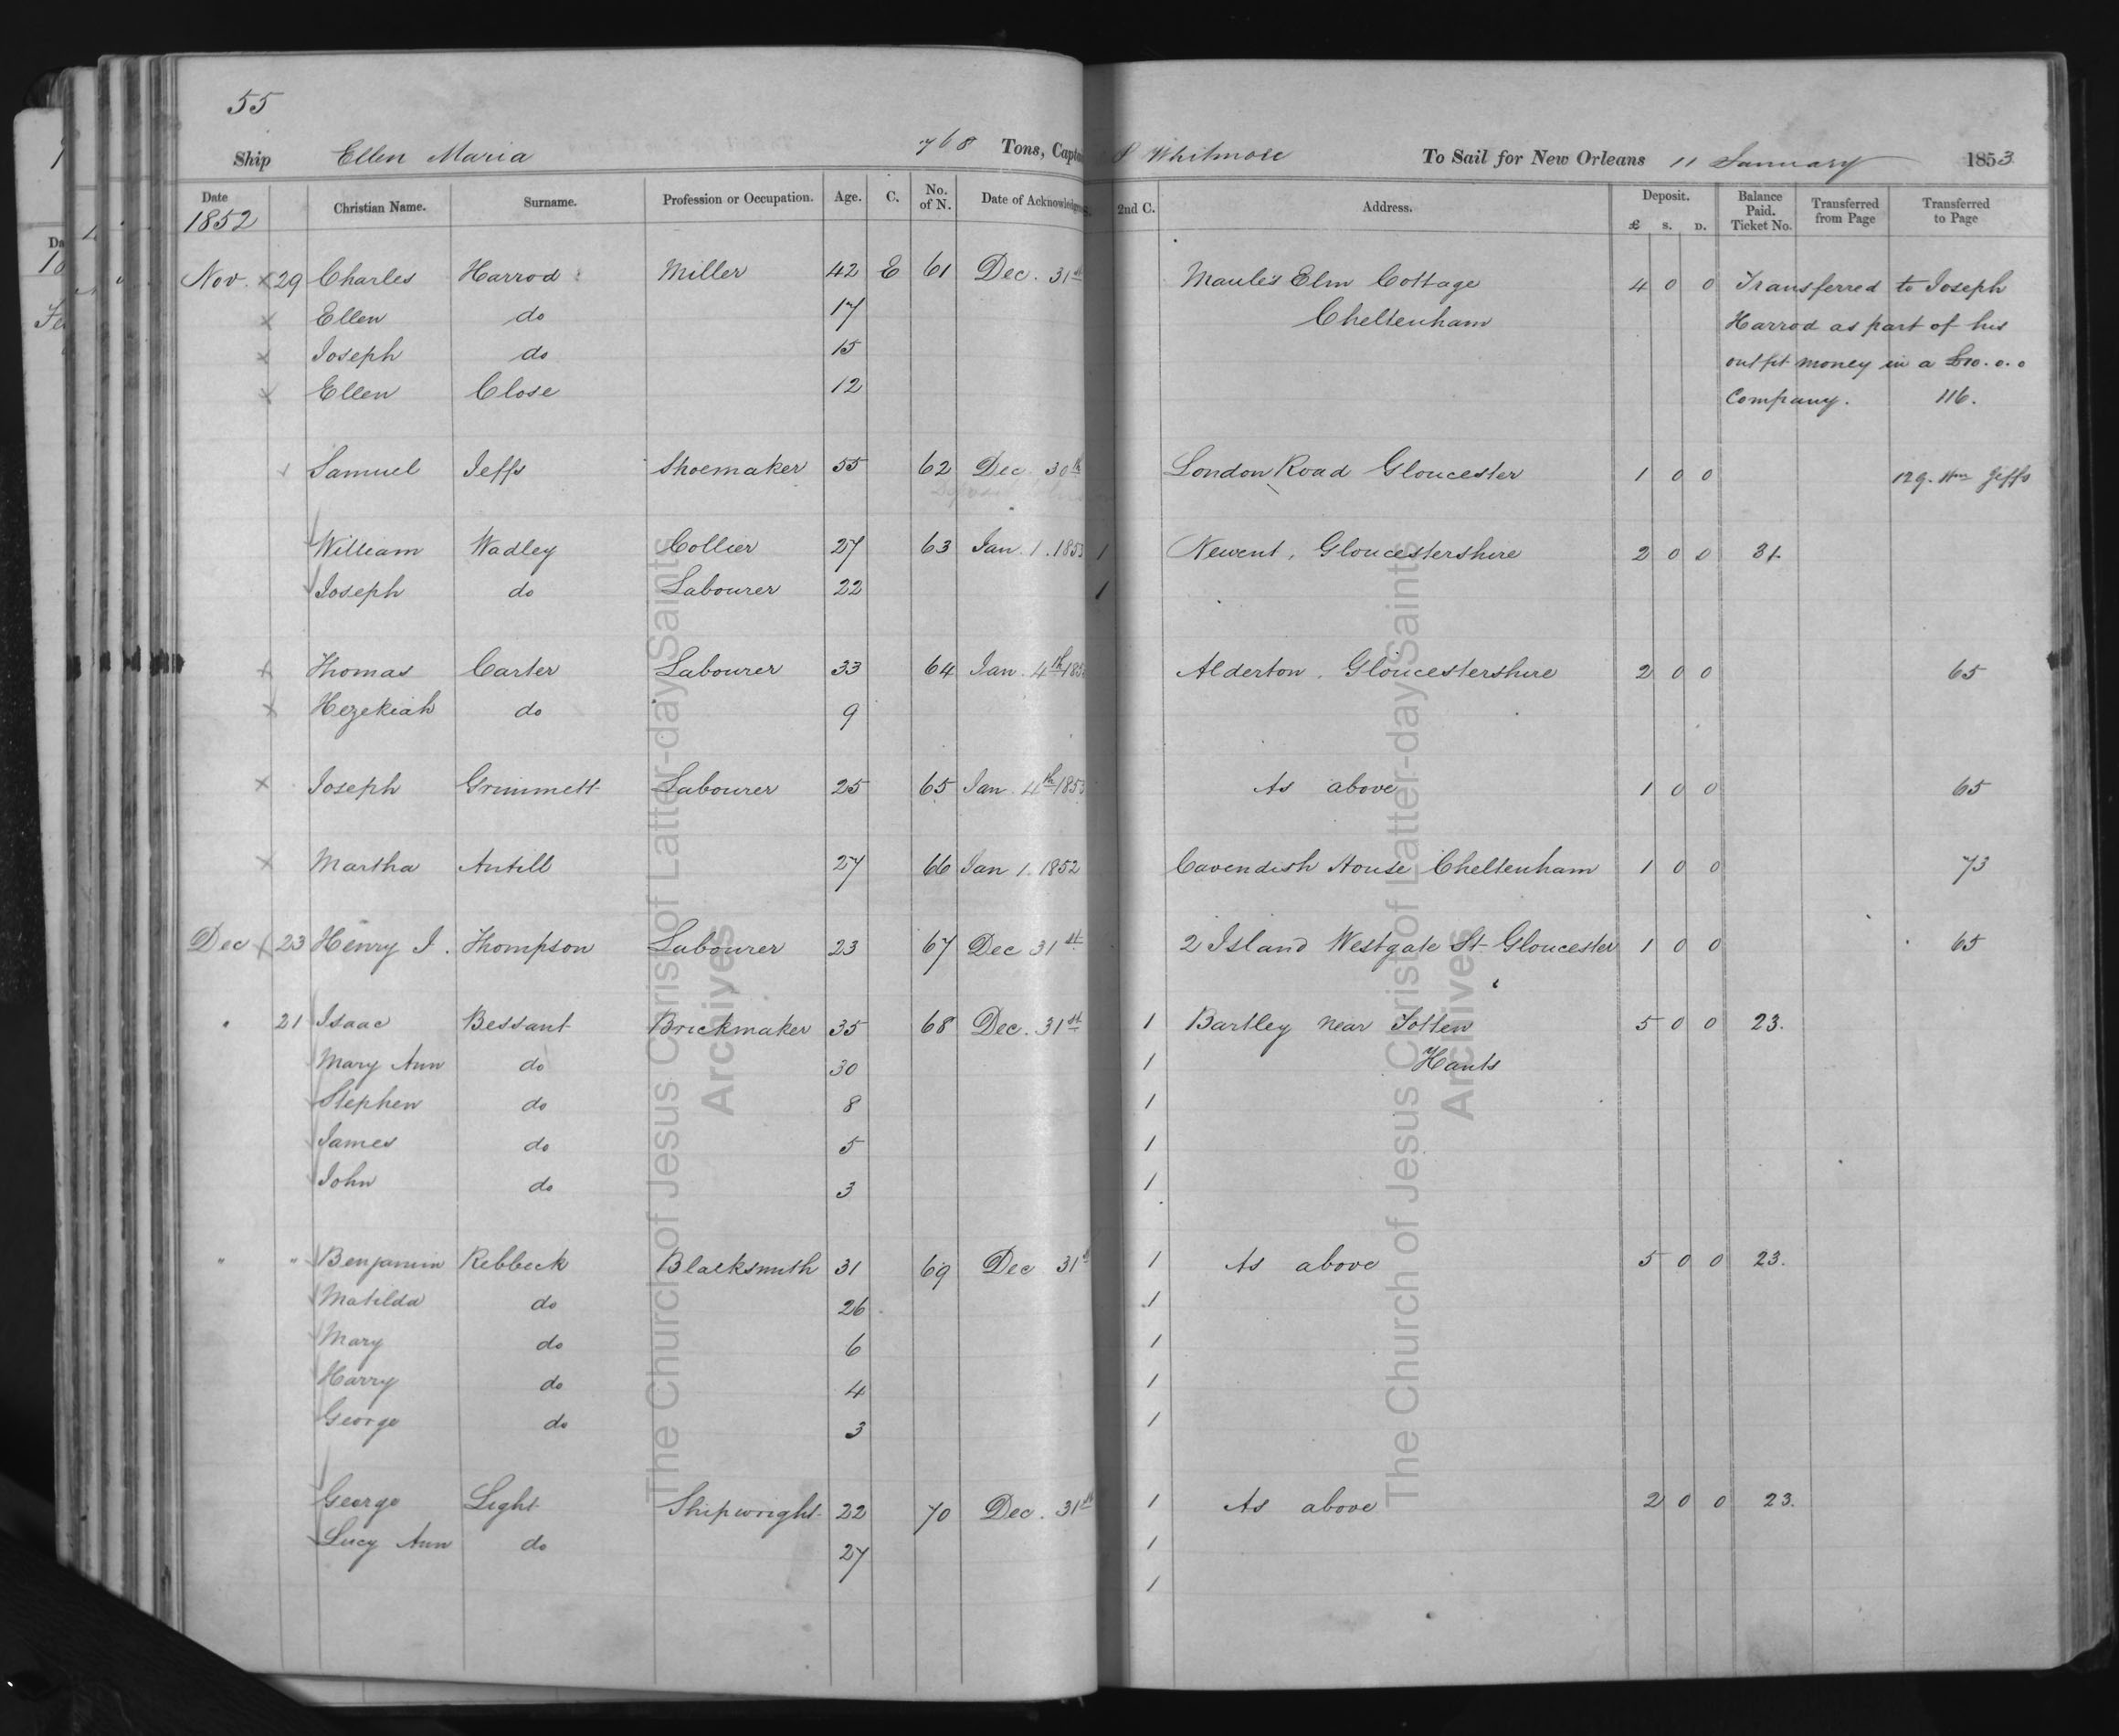 55
Ship Ellen Maria 768 Tons, Capta Whitmore To Sail for New Orleans 11 January 1853
Date Christian Name. Surname. Profession or Occupation. Age. C. No. of N. Date of Acknowledgm 2nd C. Address. Deposit. £ s. D. Balance Paid. Ticket No. Transferred from Page Transferred to Page
1852
Nov. x 29 Charles Harrod Miller 42 E 61 Dec. 31st Maule's Elm Cottage 4 0 0 Transferred to Joseph
x Ellen do 17 Cheltenham Harrod as part of his
x Joseph do 15 outfit money in a £10.0.0
x Ellen Close 12 Company. 116.
x Samuel Jeffs Shoemaker 55 62 Dec 30th London Road Gloucester 1 0 0 129. Wm Jeffs
William Wadley Collier 27 63 Jan. 1. 1853 1 Newent, Gloucestershire 2 0 0 31.
Joseph do Labourer 22 1
x Thomas Carter Labourer 33 64 Jan. 4th 185 Alderton, Gloucestershire 2 0 0 65
x Hezekiah do 9
x Joseph Grimmett Labourer 25 65 Jan. 4th 1853 As above 1 0 0 65
x Martha Antill 27 66 Jan 1. 1852 Cavendish House Cheltenham 1 0 0 73
Dec x 23 Henry J. Thompson Labourer 23 67 Dec 31st 2 Island Westgate St Gloucester 1 0 0 65
" 21 Isaac Bessant Brickmaker 35 68 Dec. 31st 1 Bartley near Totten 5 0 0 23.
Mary Ann do 30 1 Hants
Stephen do 8 1
James do 5 1
John do 3 1
" " Benjamin Rebbeck Blacksmith 31 69 Dec 31st 1 As above 5 0 0 23.
Matilda do 26 1
Mary do 6 1
Harry do 4 1
George do 3 1
George Light Shipwright 22 70 Dec. 31st 1 As above 2 0 0 23.
Lucy Ann do 27 1
1
The Church of Jesus Christ of Latter-day Saints
Archives
The Church of Jesus Christ of Latter-day Saints
Archives